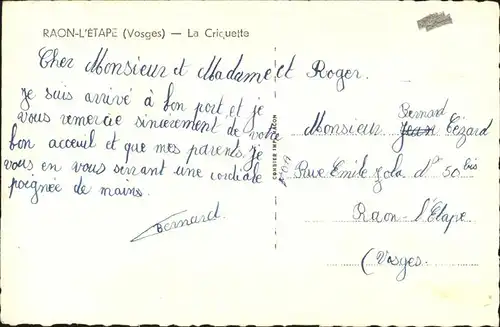 RAON-L'ETAPE (Vosges) — La Criquette
Cher Monsieur et Madame et Roger.
Je suis arrivé à bon port et je
vous remercie sincèrement de votre
bon acceuil et que mes parents, je
vous en vous serrant une cordiale
poignée de mains.
Bernard.
COMBIER IMP. MACON
Bernard
Monsieur Jean
Rue Emile Zola n° 50 bis
Raon-l'Etape
(Vosges.